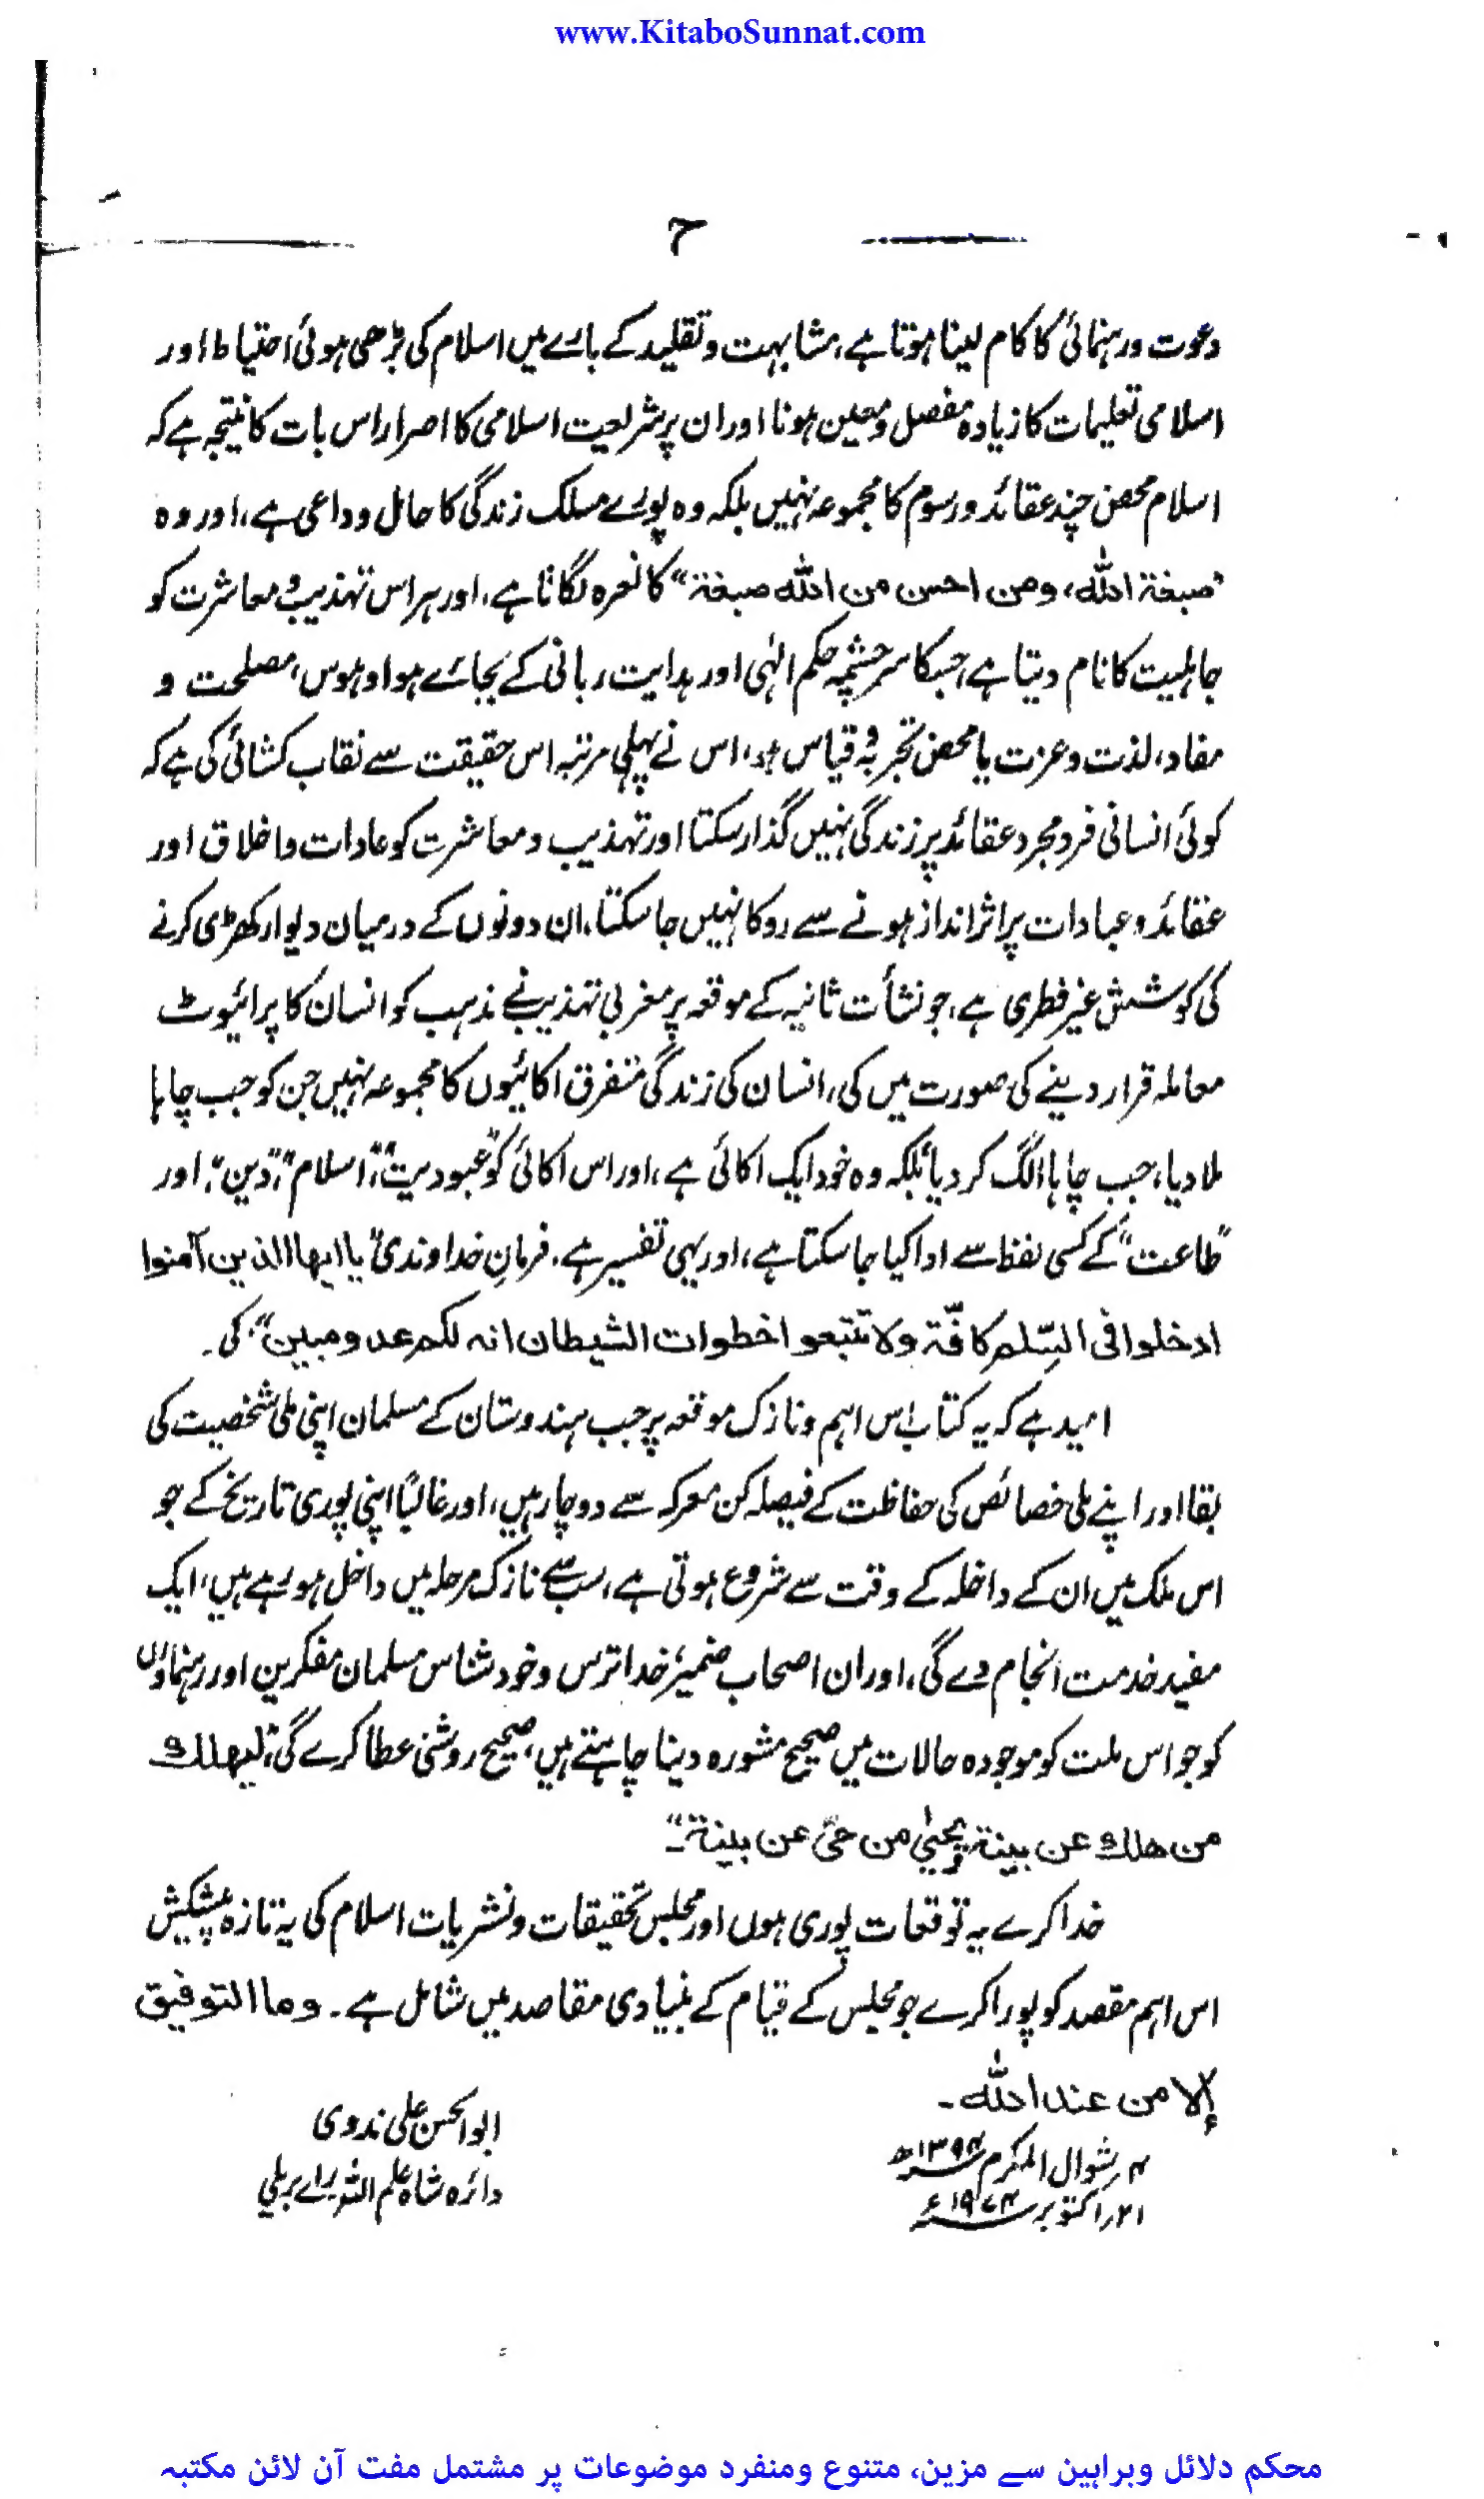 www.KitaboSunnat.com
ح
دعوت ورہنمائی کا کام لینا ہوتا ہے، مشابہت وتقلید کے بارے میں اسلام کی بڑھی ہوئی احتیاط اور
اسلامی تعلیمات کا زیادہ مفصل ومعین ہونا اور ان پر شریعت اسلامی کا اصرار اس بات کا نتیجہ ہے کہ
اسلام محض چند عقائد ورسوم کا مجموعہ نہیں بلکہ وہ پورے مسلک زندگی کا حامل وداعی ہے، اور وہ
"صبغة اللہ، ومن احسن من اللہ صبغة" کا نعرہ لگاتا ہے، اور ہر اس تہذیب ومعاشرت کو
جاہلیت کا نام دیتا ہے، جسکا سرچشمہ حکم الٰہی اور ہدایت ربانی کے بجائے ہوا وہوس، مصلحت و
مفاد، لذت وعزت یا محض تجربہ وقیاس ہو، اس نے پہلی مرتبہ اس حقیقت سے نقاب کشائی کی ہے کہ
کوئی انسانی فرد مجرد عقائد پر زندگی نہیں گذار سکتا اور تہذیب ومعاشرت کو عادات واخلاق اور
عقائد وعبادات پر اثر انداز ہونے سے روکا نہیں جا سکتا، ان دونوں کے درمیان دیوار کھڑی کرنے
کی کوشش غیر فطری ہے، جو نشأت ثانیہ کے موقعہ پر مغربی تہذیب نے مذہب کو انسان کا پرائیوٹ
معاملہ قرار دینے کی صورت میں کی، انسان کی زندگی متفرق اکائیوں کا مجموعہ نہیں جن کو جب چاہا
ملا دیا، جب چاہا الگ کر دیا بلکہ وہ خود ایک اکائی ہے، اور اس اکائی کو "عبودیت"، "اسلام"، "دین"، اور
"طاعت" کے کسی لفظ سے ادا کیا جا سکتا ہے، اور یہی تفسیر ہے، فرمانِ خداوندی "یا ایھا الذین آمنوا
ادخلوا فی السّلم کافّة ولا تتبعوا خطوات الشیطان انہ لکم عدو مبین" کی۔
امید ہے کہ یہ کتاب اس اہم ونازک موقعہ پر جب ہندوستان کے مسلمان اپنی ملی شخصیت کی
بقا اور اپنے ملی خصائص کی حفاظت کے فیصلہ کن معرکہ سے دوچار ہیں، اور غالباً اپنی پوری تاریخ کے جو
اس ملک میں ان کے داخلہ کے وقت سے شروع ہوتی ہے، سب سے نازک مرحلہ میں داخل ہو رہے ہیں، ایک
مفید خدمت انجام دے گی، اور ان اصحاب ضمیر، خدا ترس وخود شناس مسلمان مفکرین اور رہنماؤں
کو جو اس ملت کو موجودہ حالات میں صحیح مشورہ دینا چاہتے ہیں، صحیح روشنی عطا کرے گی، "لیھلك
من ھلك عن بینة ویحییٰ من حیَّ عن بینة"۔
خدا کرے یہ توقعات پوری ہوں اور مجلس تحقیقات ونشریات اسلام کی یہ تازہ پیشکش
اس اہم مقصد کو پورا کرے جو مجلس کے قیام کے بنیادی مقاصد میں شامل ہے۔ وما التوفیق
إلا من عند اللہ۔
ابوالحسن علی ندوی
دائرہ شاہ علم اللہ رائے بریلی
۴ر شوال المکرم ۱۳۹۴ھ
۲۱ر اکتوبر ۱۹۷۴ء
محکم دلائل وبراہین سے مزین، متنوع ومنفرد موضوعات پر مشتمل مفت آن لائن مکتبہ